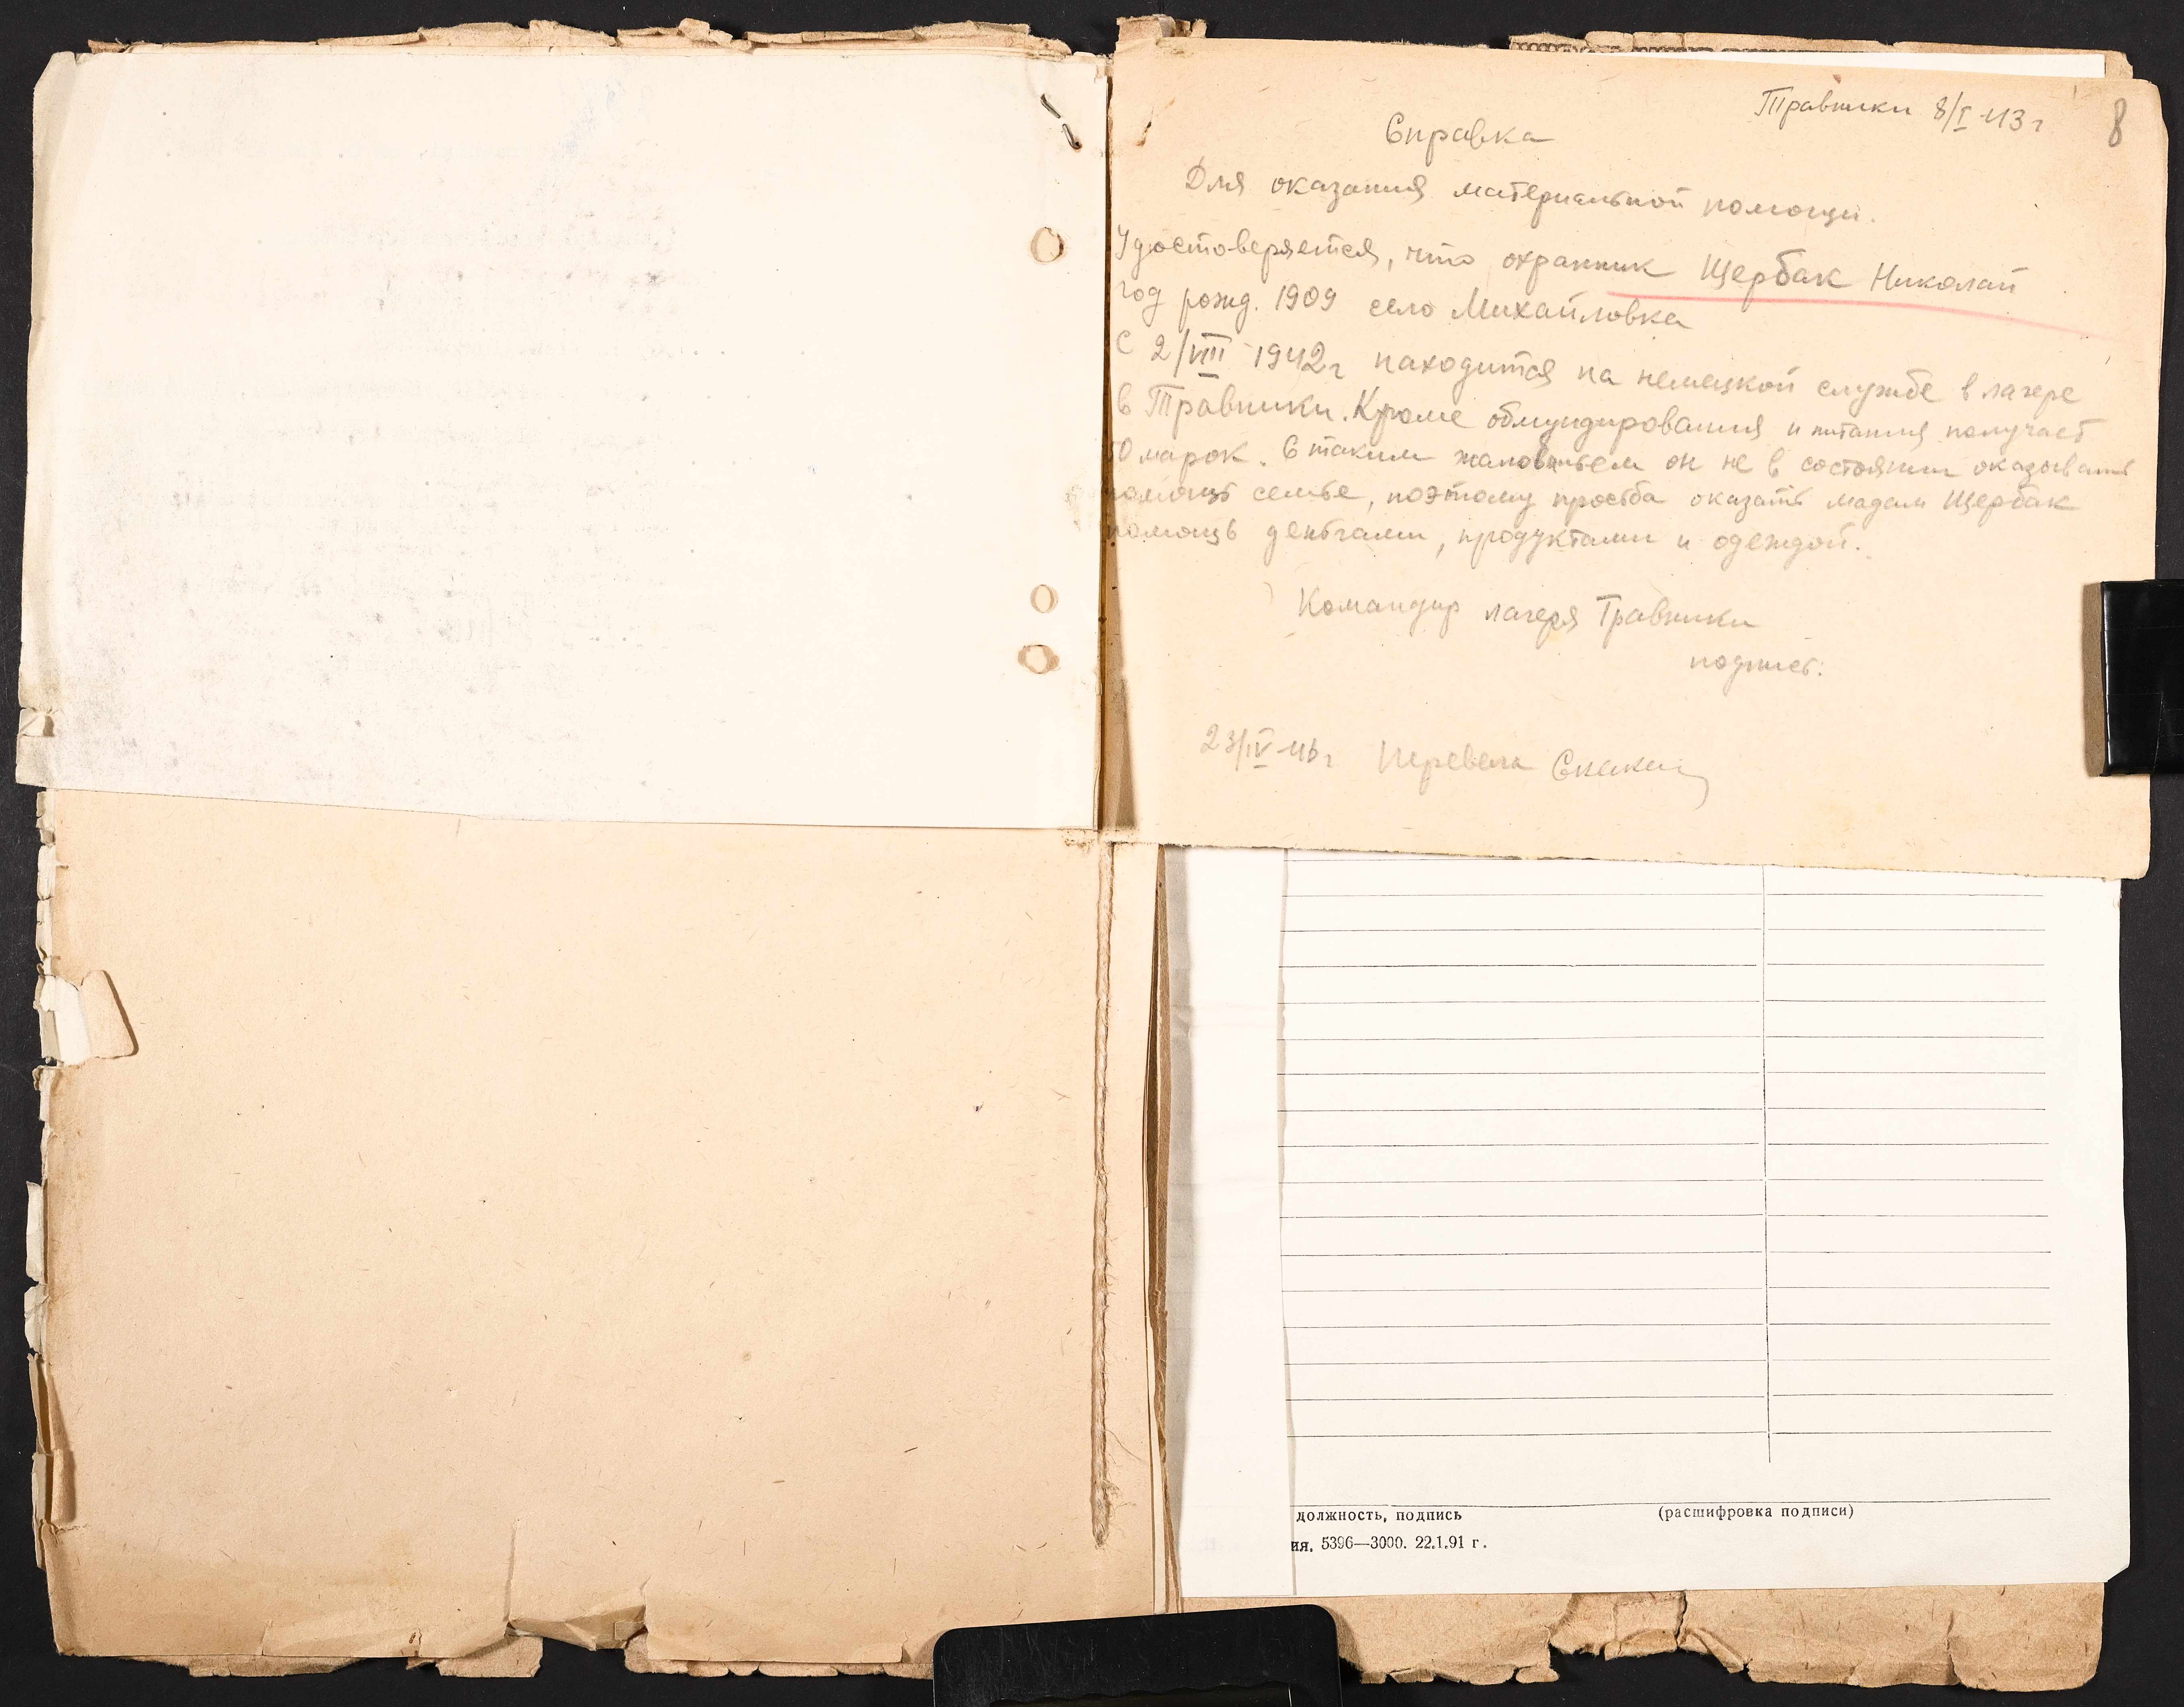 Травники 8/I-43 г
8
Справка
Для оказания материальной помощи.
Удостоверяется, что охранник Щербак Николай
год рожд. 1909 село Михайловка
С 2/VIII 1942 г находится на немецкой службе в лагере
в Травники. Кроме обмундирования и питания получает
марок. С таким жалованьем он не в состоянии оказывать
помощь семье, поэтому просьба оказать мадам Щербак
помощь деньгами, продуктами и одеждой.
Командир лагеря Травники
подпись:
23/IV-46 г Перевела
должность, подпись
(расшифровка подписи)
ия. 5396—3000. 22.1.91 г.